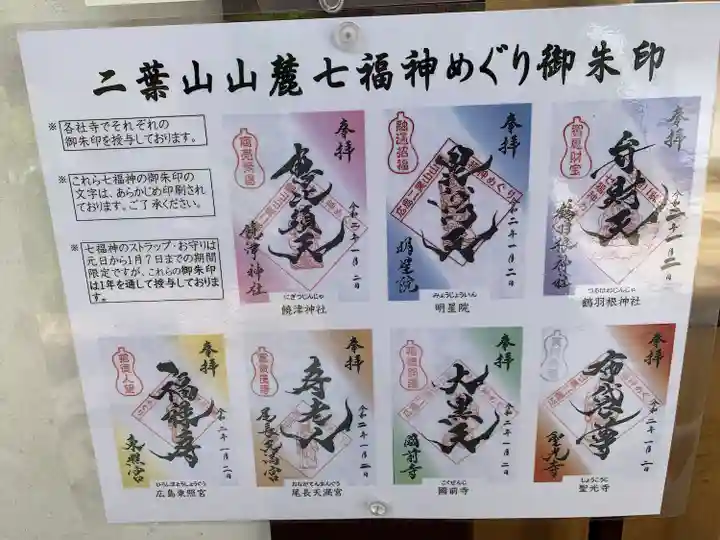 二葉山山麓七福神めぐり御朱印
※ 各社寺でそれぞれの
御朱印を授与しております。
※ これら七福神の御朱印の
文字は、あらかじめ印刷され
ております。ご了承ください。
※ 七福神のストラップ・お守りは
元日から1月7日までの期間
限定ですが、これらの御朱印
は1年を通して授与しておりま
す。
奉拝
毘沙頭天
令和二年一月二日
饒津神社
にぎつじんじゃ
饒津神社
奉拝
融通招福
令和二年一月二日
明星院
みょうじょういん
明星院
奉拝
弁財天
令和二年一月二日
鶴羽根神社
つるはねじんじゃ
鶴羽根神社
奉拝
福禄寿
令和二年一月二日
東照宮
ひろしまとうしょうぐう
広島東照宮
奉拝
寿老人
令和二年一月二日
尾長天満宮
おながてんまんぐう
尾長天満宮
奉拝
大黒天
令和二年一月二日
國前寺
こくぜんじ
國前寺
奉拝
布袋尊
令和二年一月二日
聖光寺
しょうこうじ
聖光寺